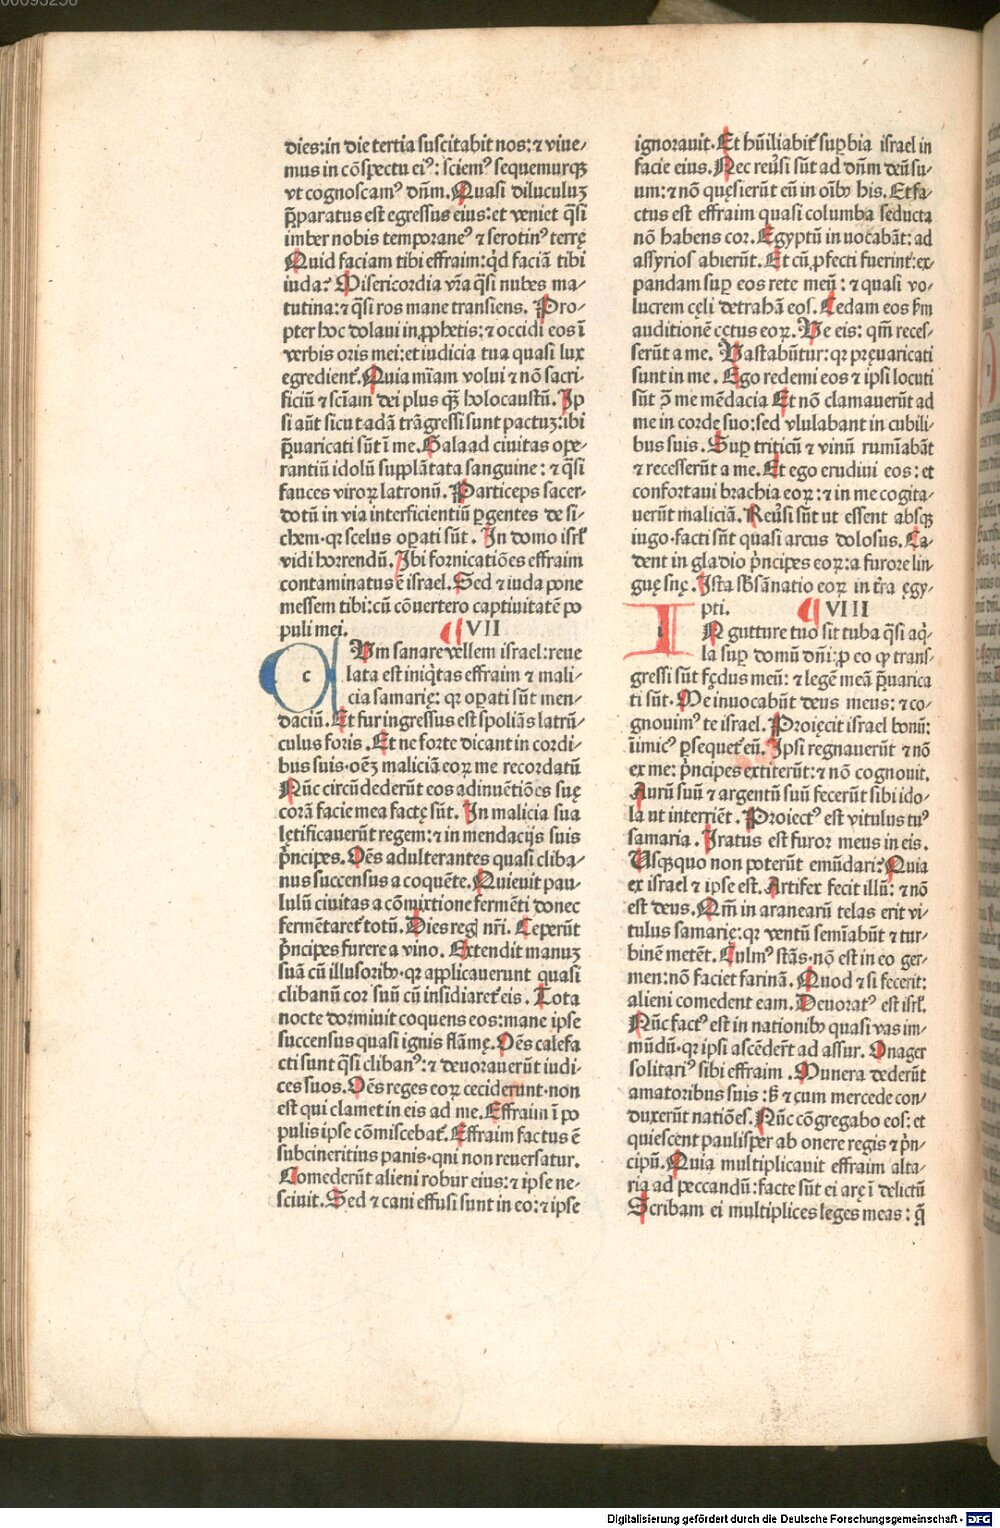 dies:in die tertia suscitabit nos:⁊ viue⸗
mus in cōspectu eiꝰ: sciemꝰ sequemurqꝫ
vt cognoscamꝰ dn̄m.Quasi diluculuꝫ
p̄paratus est egressus eius:et veniet q̄si
imber nobis temporaneꝰ ⁊ serotinꝰ terrę
Quid faciam tibi effraim:qd̓ faciā tibi
iuda? Misericordia vr̄a q̄si nubes ma⸗
tutina:⁊ q̄si ros mane transiens. Pro⸗
pter hoc dolaui in ꝓphetis:⁊ occidi eos ī
verbis oris mei:et iudicia tua quasi lux
egredient᷑.Quia mīam volui ⁊ nō sacri⸗
ficiū ⁊ sciam̄ dei plus q̄ꝫ holocaustū. Ip
si aūt sicut adā trāgressi sunt pactuꝫ:ibi
p̄uaricati sūt ī me.Galaad ciuitas ope⸗
rantiū idolū supplātata sanguine: ⁊ q̄si
fauces viroꝝ latronū. Particeps sacer⸗
dotū in via interficientiū ꝑgentes de si⸗
chem.qꝛ scelus oꝑati sūt. In domo isrl̓
vidi horrendū. Ibi fornicatiōes effraim
contaminatus ē israel. Sed ⁊ iuda pone
messem tibi:cū cōuertero captiuitatē po
puli mei. VII
c Vm sanare vellem israel:reue
lata est iniq̓tas effraim ⁊ mali⸗
cia samarię: qꝛ oꝑati sūt men⸗
daciū.Et fur ingressus est spoliās latrū⸗
culus foris. Et ne forte dicant in cordi⸗
bus suis.oēꝫ maliciā eoꝝ me recordatū
Nūc circūdederūt eos adinuētiōes suę
corā facie mea factę sūt. In malicia sua
lętificauerūt regem:⁊ in mendacijs suis
p̓ncipes. Oēs adulterantes quasi cliba⸗
nus succensus a coquēte.Quieuit pau⸗
lulū ciuitas a cōmixtione fermēti donec
fermētaret᷑ totū.Dies reg̃ nr̄i. Ceperūt
p̓ncipes furere a vino. Extendit manuꝫ
suā cū illusoribꝰ.qꝛ applicauerunt quasi
clibanū cor suū cū insidiaret᷑ eis. Tota
nocte dormiuit coquens eos:mane ipse
succensus quasi ignis flāmę.Oēs calefa
cti sunt q̄si clibanꝰ:⁊ deuorauerūt iudi⸗
ces suos.Oēs reges eoꝝ ceciderunt.non
est qui clamet in eis ad me.Effraim ī po
pulis ipse cōmiscebat᷑.Effraim factus ē
subcineritius panis.qui non reuersatur.
Comederūt alieni robur eius:⁊ ipse ne⸗
sciuit.Sed ⁊ cani effusi sunt in eo:⁊ ipse
ignorauit.Et hūiliabit᷑ suꝑbia israel in
facie eius.Nec reūsi sūt ad dn̄m deū su⸗
um:⁊ nō quęsierūt eū in oībꝰ his. Et fa⸗
ctus est effraim quasi columba seducta
nō habens cor.Egyptū inuocabāt: ad
assyrios abierūt.Et cū ꝓfecti fuerint᷑:ex⸗
pandam suꝑ eos rete meū: ⁊ quasi vo⸗
lucrem cęli detrahā eos.Cedam eos s̄m
auditionē cętus eoꝝ.Ve eis: qm̄ reces⸗
serūt a me. Vastabūtur:qꝛ pręuaricati
sunt in me. Ego redemi eos ⁊ ipsi locuti
sūt ꝯ̄ me mēdacia Et nō clamauerūt ad
me in corde suo:sed vlulabant in cubili⸗
bus suis. Suꝑ triticū ⁊ vinū rumiabāt
⁊ recesserūt a me.Et ego erudiui eos: et
confortaui brachia eoꝝ:⁊ in me cogita⸗
uerūt maliciā.Reūsi sūt ut essent absqꝫ
iugo.facti sūt quasi arcus dolosus. Ca⸗
dent in gladio p̓ncipes eoꝝ:a furore lin⸗
guę suę.Ista sb̓sānatio eoꝝ in tr̄a ęgy⸗
pti. VIII
i N gutture tuo sit tuba q̄si aq̓⸗
la suꝑ domū dn̄i:ꝓ eo ꝙ trans⸗
gressi sūt fędus meū: ⁊ legē meā p̄uarica
ti sūt. Me inuocabūt deus meus: ⁊ co⸗
gnouimꝰ te israel.Proięcit israel bonū:
īimicꝰ ꝑsequet᷑ eū.Ipsi regnauerūt ⁊ nō
ex me: p̓ncipes extiterūt:⁊ nō cognouit.
Aurū suū ⁊ argentū suū fecerūt sibi ido⸗
la ut interriēt. Proiectꝰ est vitulus tuꝰ
samaria. Iratus est furor meus in eis.
Usqꝫquo non poterūt emūdari? Quia
ex israel ⁊ ipse est. Artifex fecit illū: ⁊ nō
est deus. Qm̄ in aranearū telas erit vi⸗
tulus samarię:qꝛ ventū semiabūt ⁊ tur⸗
binē metēt. Culmꝰ stās.nō est in eo ger⸗
men:nō faciet farinā. Quod ⁊ si fecerit:
alieni comedent eam.Deuoratꝰ est isrl̓.
Nūc factꝰ est in nationibꝰ quasi vas im⸗
mūdū.qꝛ ipsi ascēder̄t ad assur. Onager
solitariꝰ sibi effraim .Munera dederūt
amatoribus suis :sꝫ ⁊ cum mercede con⸗
duxerūt natiōes. Nūc cōgregabo eos: et
quiescent paulisper ab onere regis ⁊ p̓n⸗
cipū. Quia multiplicauit effraim alta⸗
ria ad peccandū:facte sūt ei arę ī delictū
Scribam ei multiplices leges meas: q̄
Digitalisierung gefördert durch die Deutsche Forschungsgemeinschaft - DFG